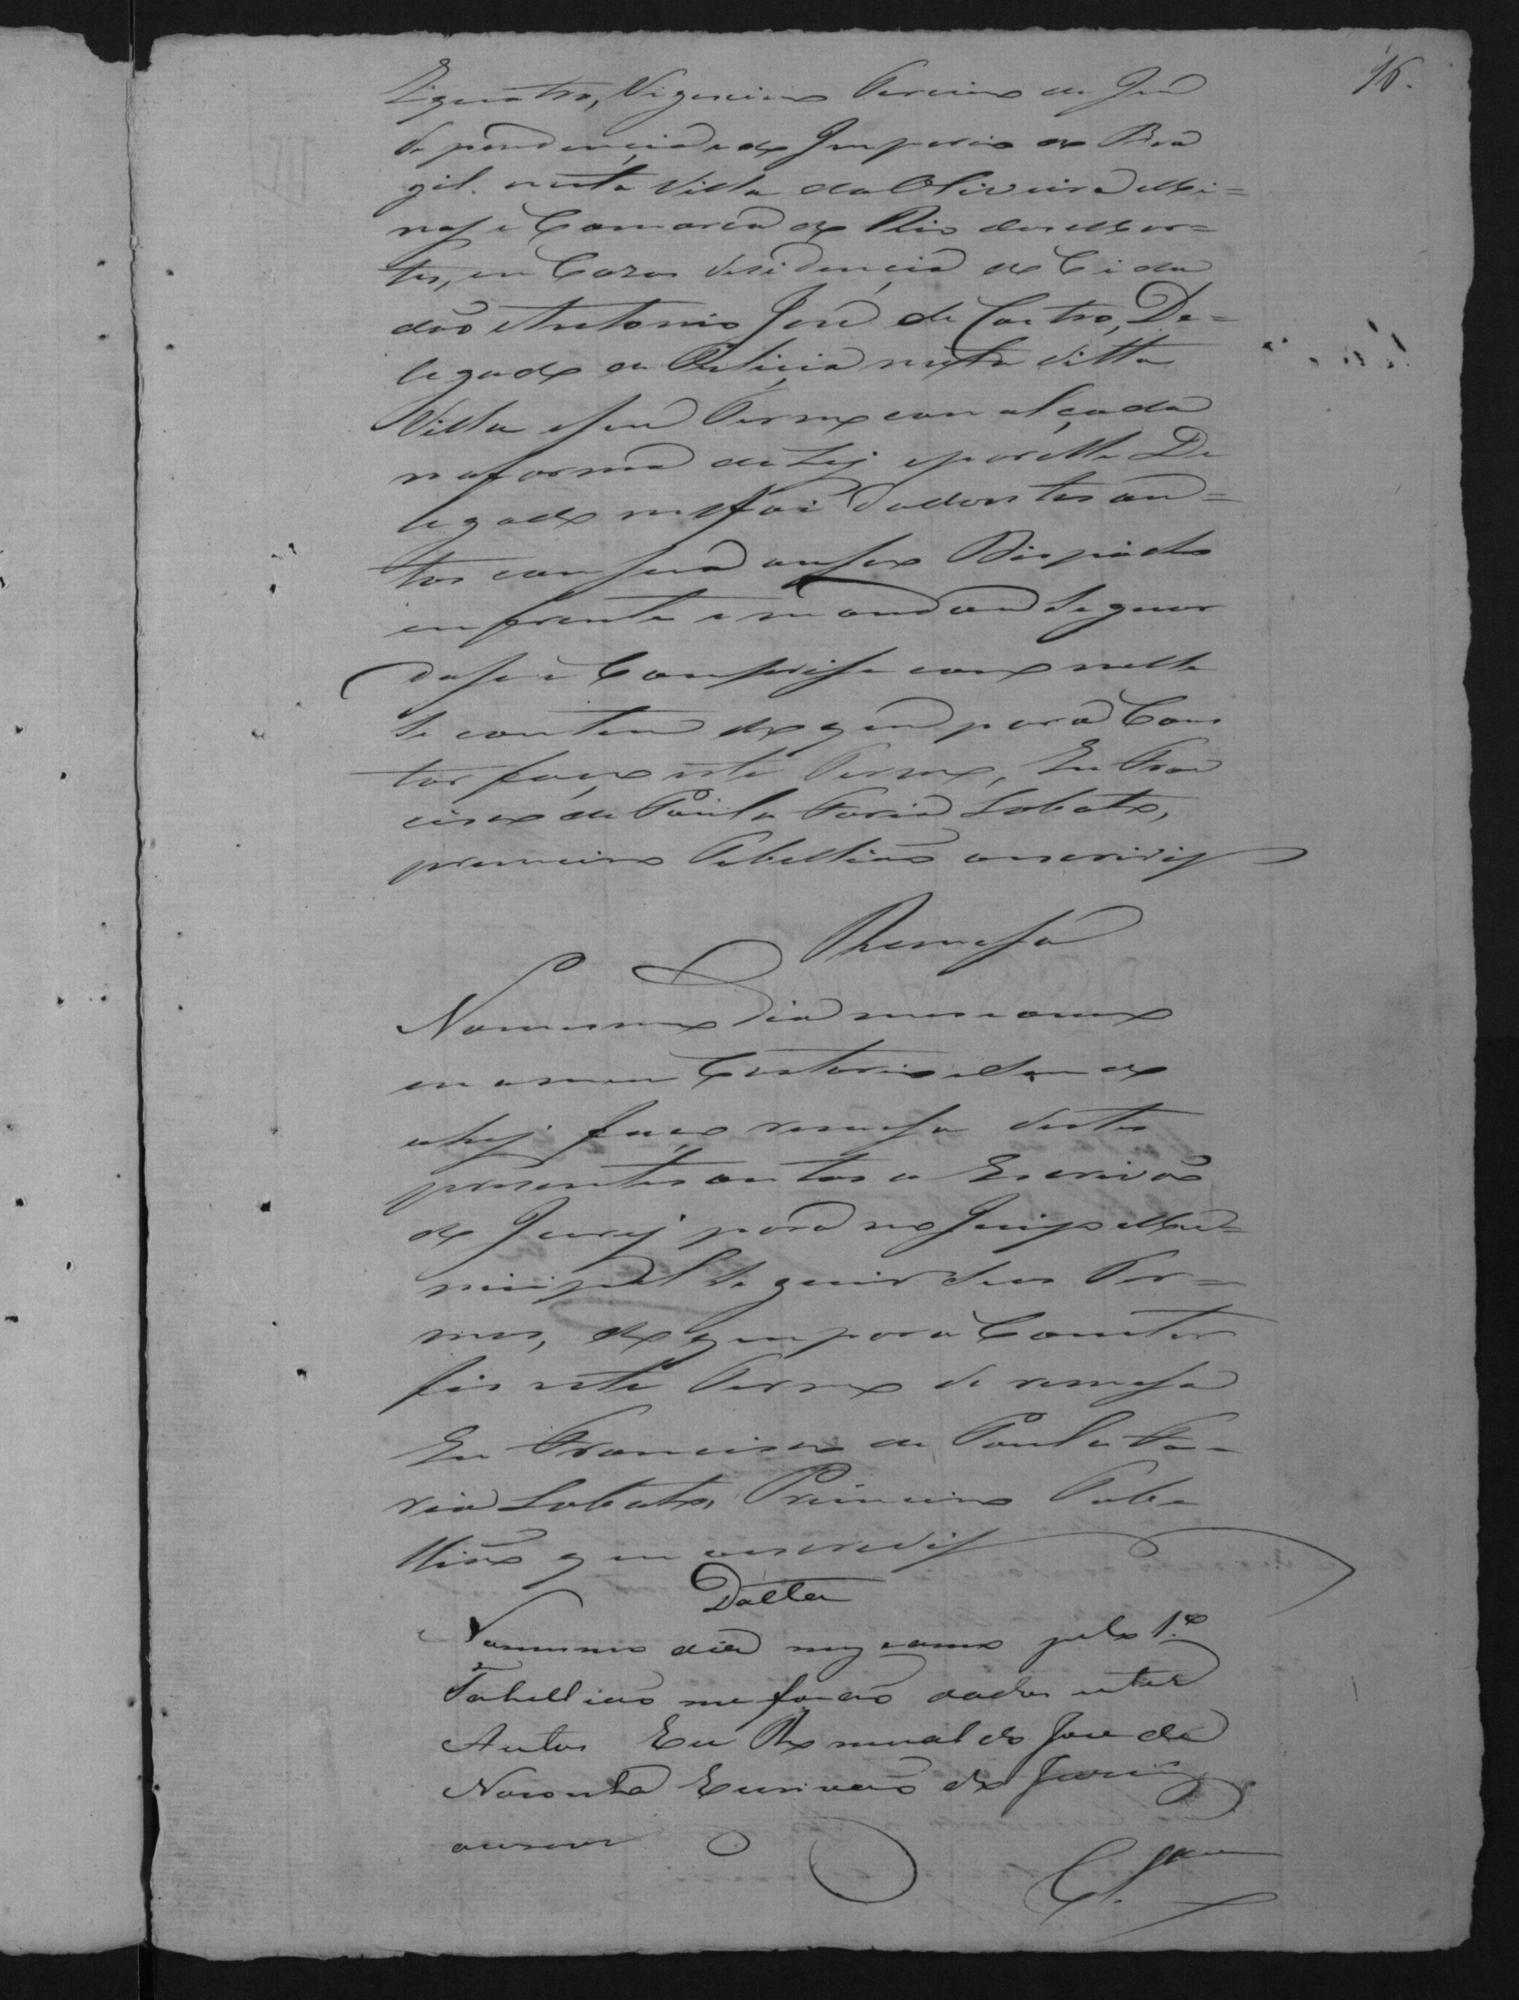 16.
E quatro, Vigesimo Terceiro da Jn
dependencia e do Imperio do Bra
zil nesta Villa da Oliveira Mi=
nas e Comarca do Rio das Mor=
tes, em Cazas de residencia do Cida
dão Antonio José de Castro, De=
legado da Policia nesta ditta
Villa e seu Termo com alçada
na forma da Ley e por elle De
legado me foi dados estes au=
tos com sua Despacho
em frente e mandou se guar
dase e Comprise como nelle
se contem do que para Cons
tar faço este Termo, Eu Fran
cisco de Paula Faria Lobato,
primeiro Tabellião o escrivy
Remesa
No mesmo Dia mes e anno
em o meu Cartorio sendo
ahy faço remesa destes
presentes autos o Escrivão
do Jury para no Juizo Mu=
nicipal seguir seus Ter=
mos, do que para Constar
fis este Termo de remesa
Eu Francisco de Paula Fa=
ria Lobato, Primeiro Tabe
llião que o escrevy
Datta
No mesmo dia mez e anno pelo 1.º
Tabellião me forão dados estes
Autos Eu Romualdo José de
Noronha Escrivão do Jury
o escrevi